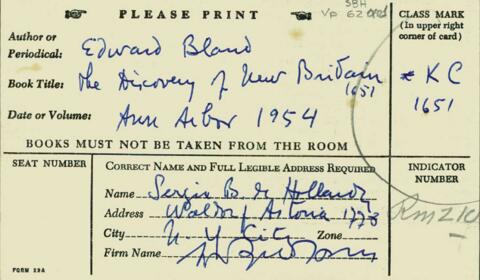 PLEASE PRINT
SBH
Vp 62
CLASS MARK
(In upper right
corner of card)
Author or
Periodical: Edward Bland
Book Title: The Discovery of New Britain
1651
* KC
1651
Date or Volume: Ann Arbor 1954
BOOKS MUST NOT BE TAKEN FROM THE ROOM
SEAT NUMBER
CORRECT NAME AND FULL LEGIBLE ADDRESS REQUIRED
INDICATOR
NUMBER
Name Sergio B de Hollanda
Address Waldorf Astoria 1778
City N. Y City Zone
Firm Name
FORM 29A